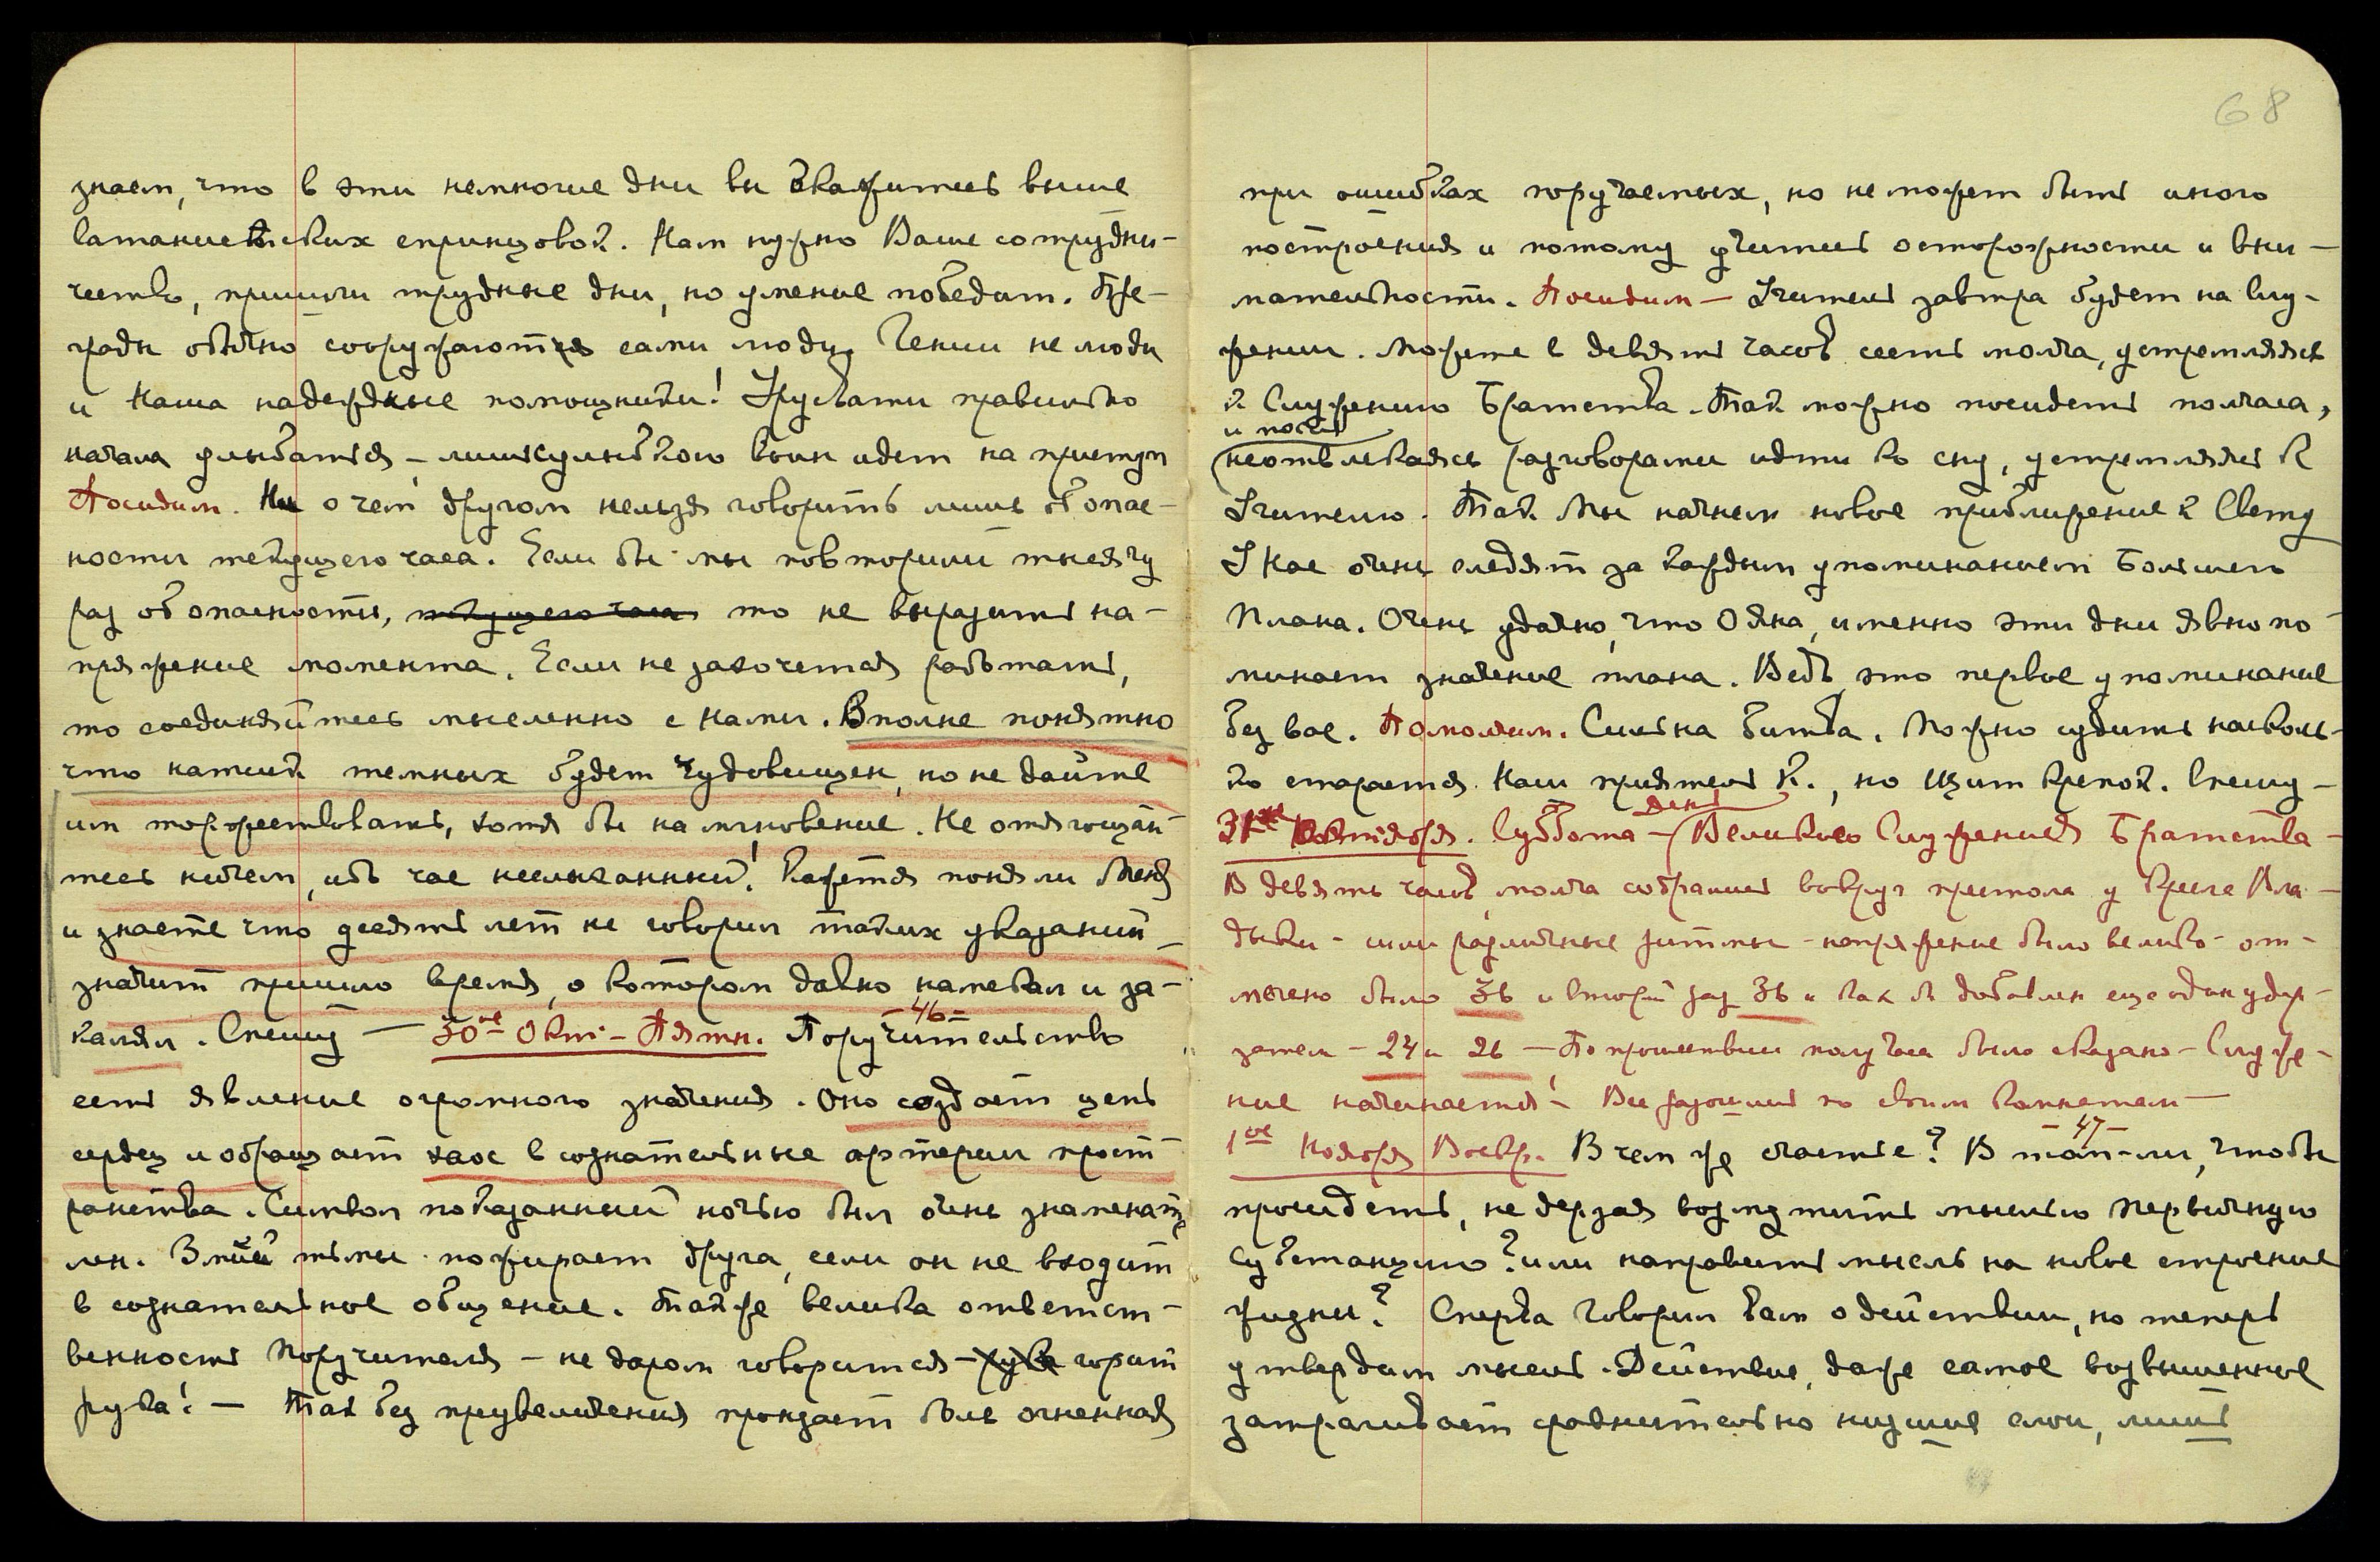 знаем, что в эти немногие дни вы окажитесь выше
сатанистских спринцовок. Нам нужно Ваше сотрудни-
чество, пришли трудные дни, но умение победит. Пре-
грады обычно сооружаются сами люди. Гении не люди
и Наша надежные помощники! Урусвати правильно
начала улыбаться – лишь с улыбкою воин идет на приступ
Посидим. Ни о чем другом нельзя говорить лишь об опас-
ности текущего часа. Если бы мы повторили тысячу
раз об опасности, текущего часа то не выразить на-
пряжение момента. Если не захочется работать,
то соединяйтесь мысленно с Нами. Вполне понятно
что натиск темных будет чудовищен, но не дайте
им торжествовать, хотя бы на мгновение. Не отягощай-
тесь ничем, ибо час неслыханный! Кажется поняли Меня
и знаете что десять лет не говорил таких указаний –
значит пришло время, о котором давно намекал и за-
калял. Спешу — 30ое Окт. – Пятн. Поручительство
– 46 –
есть явление огромного значения. Оно создает цепь
сердец и обращает хаос в сознательные артерии прост-
ранства. Символ показанный ночью был очень знаменате-
лен. Змий тьмы пожирает друга, если он не входит
в сознательное общение. Также велика ответст-
венность Поручителя – не даром говорится – рука горит
рука! – Так без преувеличения пронзает боль огненная
68
при ошибках поручаемых, но не может быть иного
построения и потому учитесь осторожности и вни-
мательности. Посидим – Учитель завтра будет на Слу-
жении. Можете в девять часов сесть молча, устремляясь
к Служению Братства. Так можно посидеть полчаса,
и после
не отвлекаясь разговорами идти ко сну, устремляясь к
Учителю. Так Мы начнем новое приближение к Свету
У Нас очень следят за каждым упоминанием Большего
Плана. Очень удачно, что Ояна, именно эти дни явно по-
минает значение плана. Ведь это первое упоминание
без вас. Помолчим. Сильна битва. Можно судить насколь-
ко старается Наш приятель К., но Щит крепок. Спешу –
31ое Октября. Суббота – День Великого Служения Братства –
В девять часов, молча собрались вокруг престола у кресла Вла-
дыки – шли различные ритмы – напряжение было велико – от-
мечено было 36 и второй раз 36 и как бы добавлен еще один удар –
затем – 24 и 26 – По прошествии получаса было сказано – Служе-
ние начинается! – Все разошлись по своим комнатам —
1ое Ноября Воскр. В чем же счастье? В том-ли, чтобы
– 47 –
просидеть, не дерзая возмутить мыслью Первичную
субстанцию? или направить мысль на новое строение
жизни? Сперва Говорил вам о действии, но теперь
утвердим мысль. Действие, даже самое возвышенное
затрагивает сравнительно низшие слои, лишь